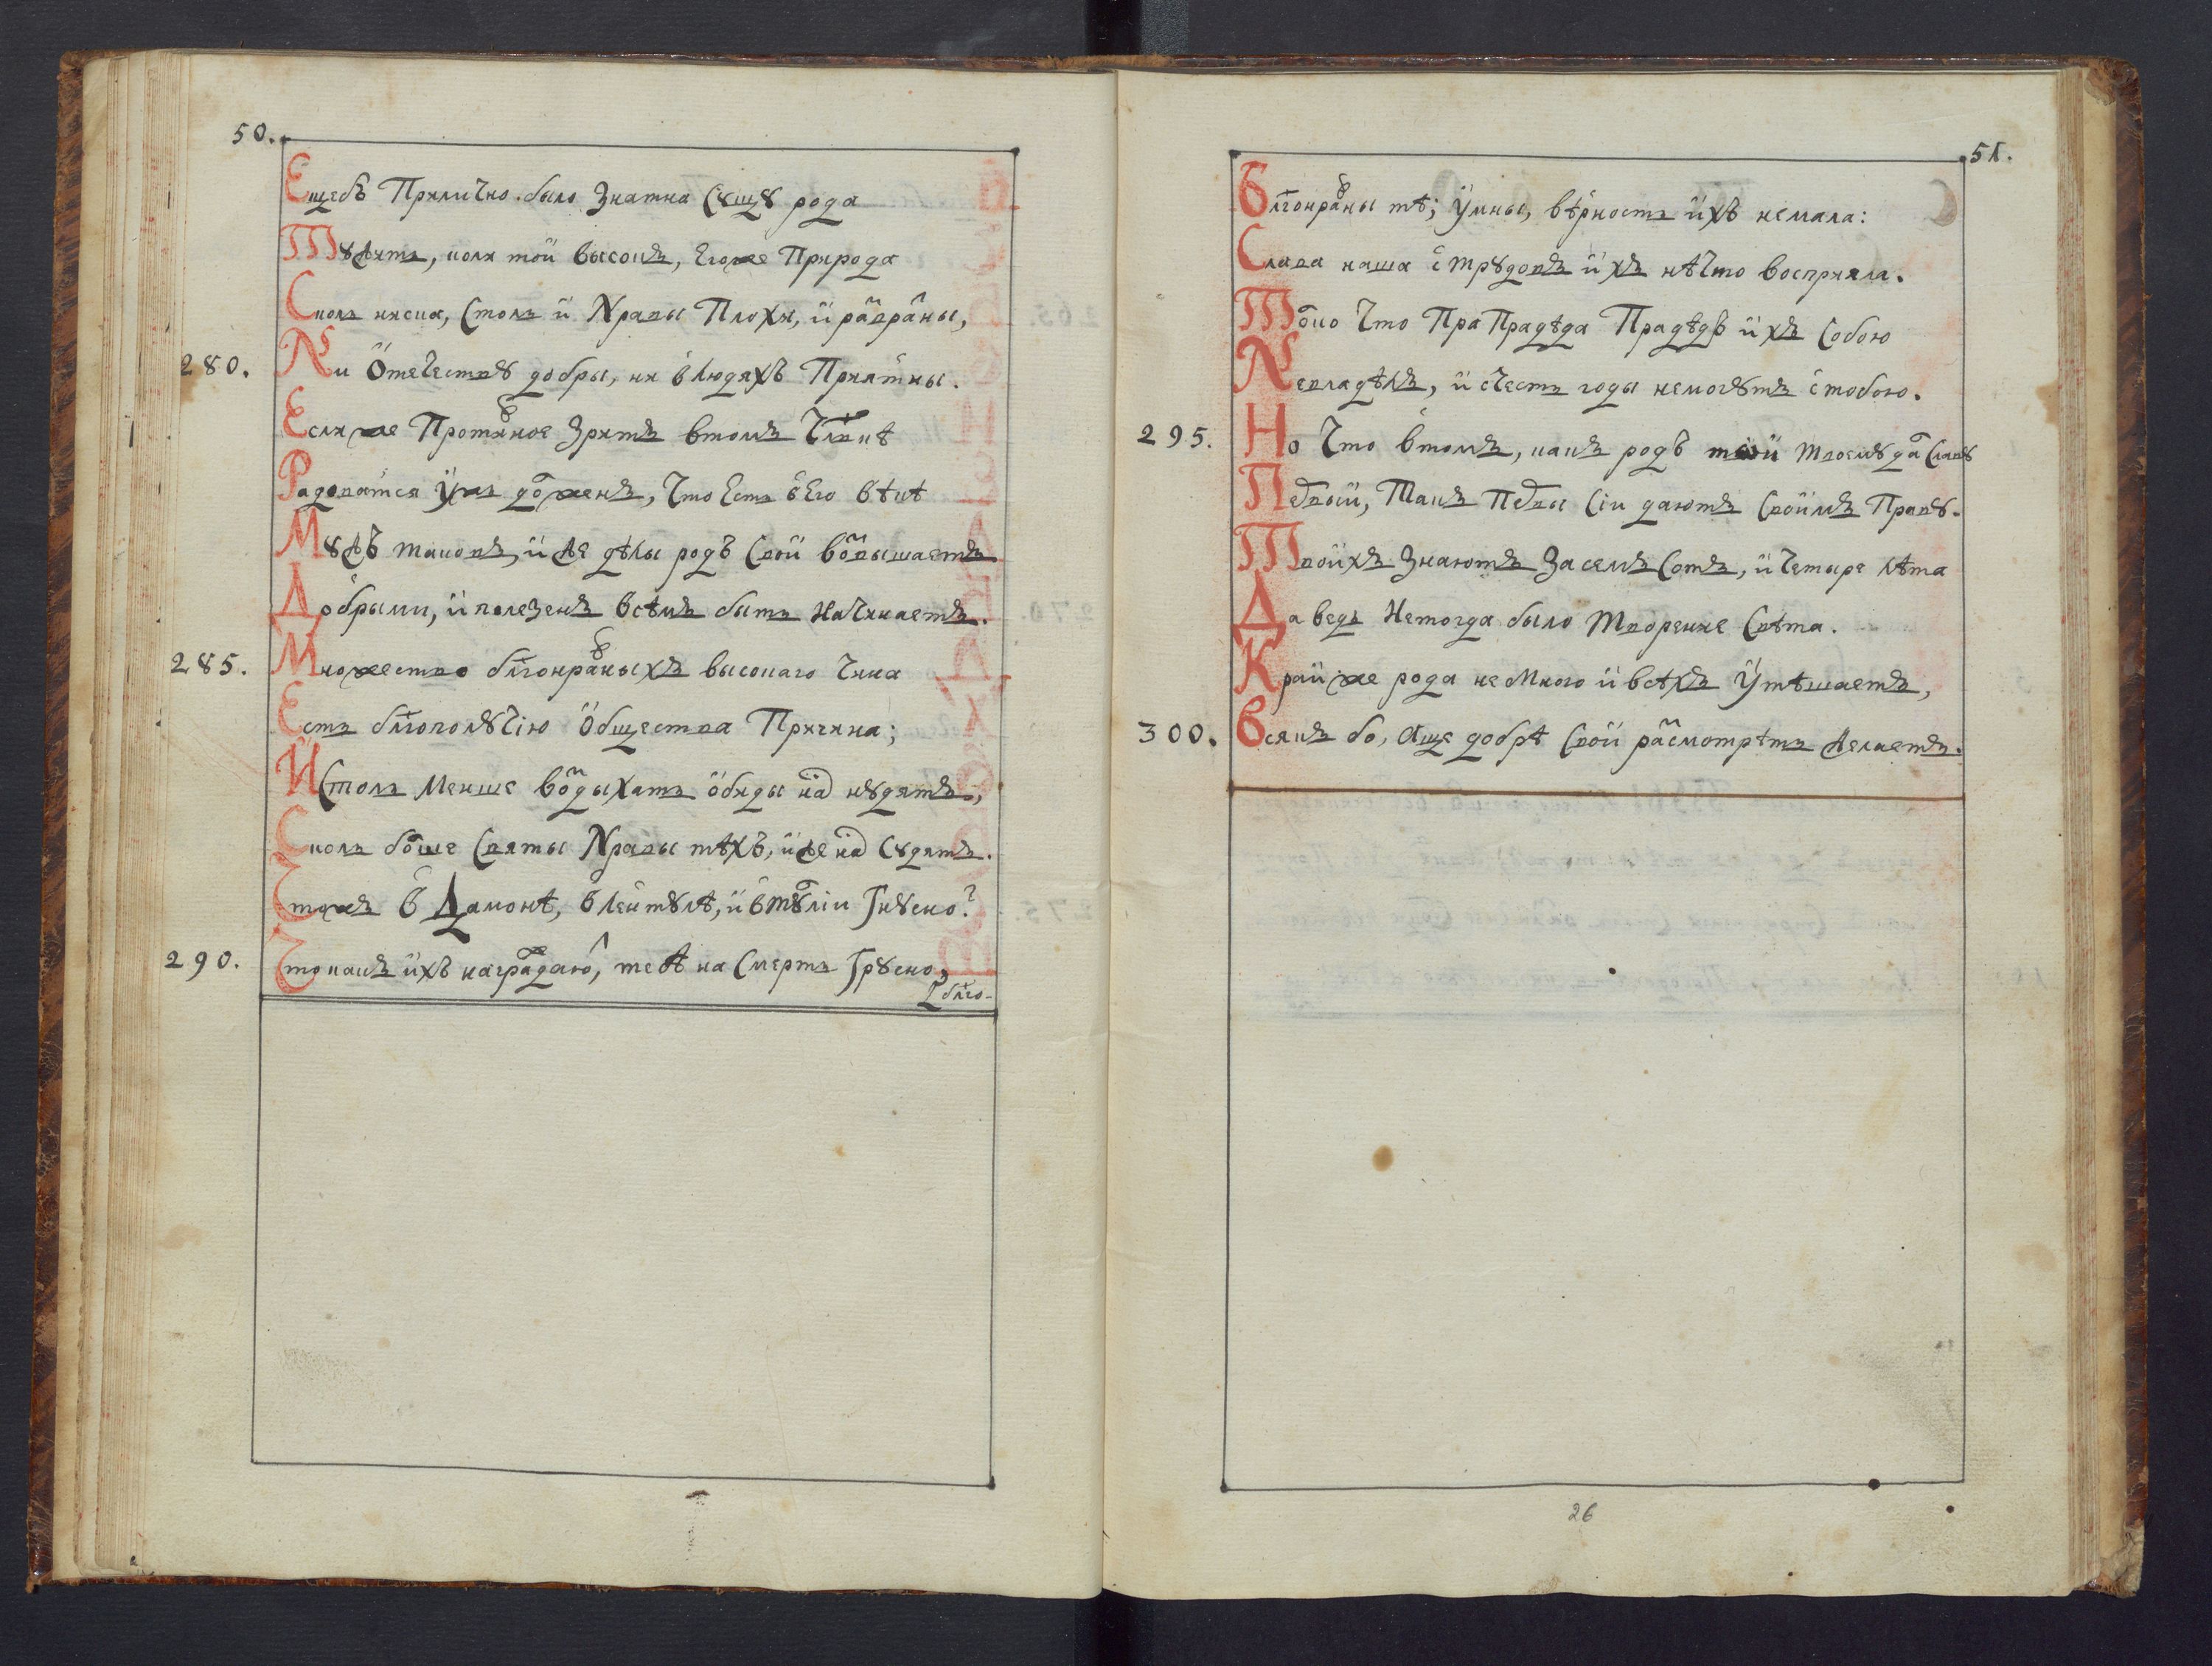 50.
Ещебъ Прилично было Знатна Сꙋщꙋ рода
Тꙋжить, коли той высокъ, Егоже Природа
Сколь ниска, Столь и Нравы Плохи, и развраны,
280. Ни Отечествꙋ добры, ни в людяхъ Приятны.
Если же Противное Зритъ втомъ Члвкѣ
Радоватся Умъ долженъ, Что Есть в Его вѣкѣ
Мꙋжъ таковъ, иже дѣлы родъ Свой возвышаетъ
Добрыми, и полезенъ всѣмъ быть Начинаетъ.
285. Множество блгонравныхъ высокаго Чина
Есть блгополꙋчїю Общества Причина;
И Столь Менше воздыхать обиды нас нꙋдятъ,
Сколь болше Святы Нравы тѣхъ, иже нас Сꙋдятъ.
Чтожъ в Дамонѣ, в леитꙋлѣ, и в тꙋлїи Гнꙋсно?
290. Что какъ ихъ награждаю, тебѣ на Смерть Грꙋсно,
блго-
51.
Блгонравны тѣ; Умны, вѣрность ихъ немала:
Слава наша с Трꙋдовъ ихъ нѣчто восприяла.
Токо Что ПраПрадѣда Прадѣдъ ихъ Собою
Невладѣлъ, и счесть годы немогꙋтъ с тобою.
295. Но Что в томъ, какъ родъ твой твоемꙋ дал Славꙋ
Первый, Такъ Первы Сїи даютъ Своимъ Правꙋ.
Твоихъ Знаютъ За семъ Сотъ, и Четыре лѣта
Да ведь Нетогда было Творение Свѣта.
Край же рода не Много и всѣхъ Утѣшаетъ,
300. Всякъ бо, Аще добрѣ Свой расмотрѣть желаетъ.
26